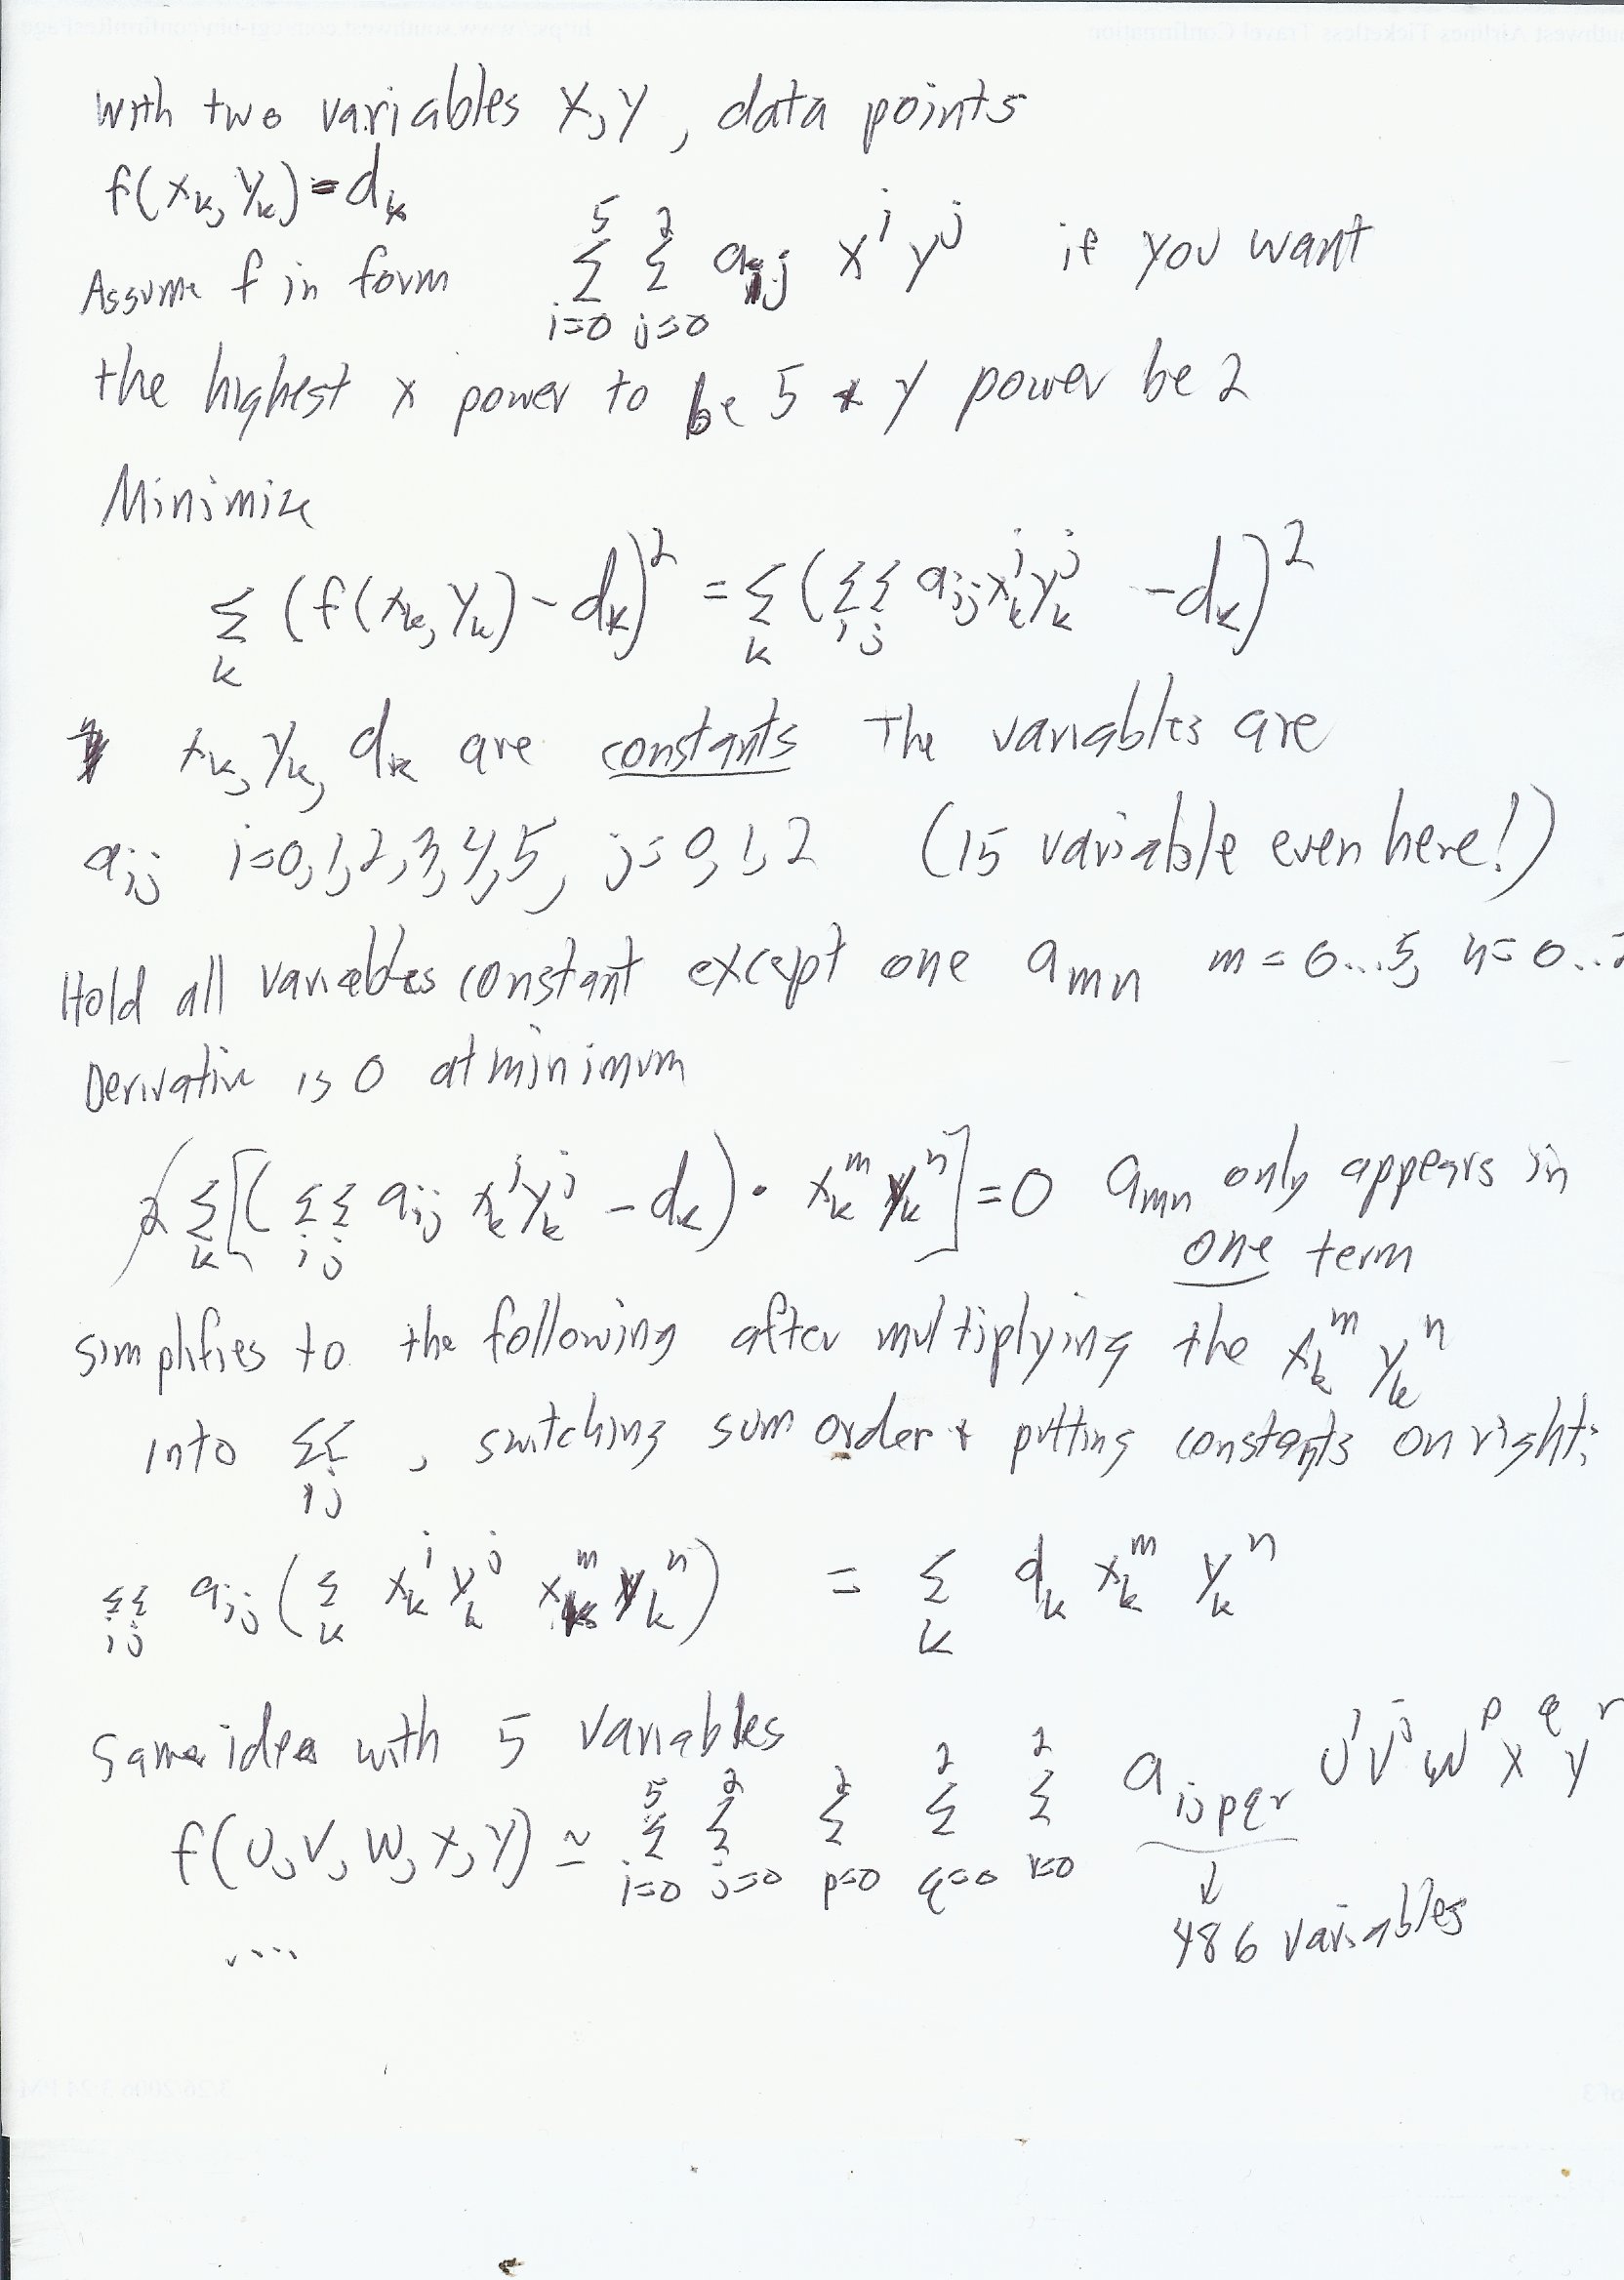 With two variables X, Y, data points
f(x_k, y_k) = d_k
Assume f in form ∑_{i=0}^{5} ∑_{j=0}^{2} a_{ij} x^i y^j if you want
the highest x power to be 5 + y power be 2
Minimize
∑_k (f(x_k, y_k) - d_k)^2 = ∑_k (∑_i ∑_j a_{ij} x_k^i y_k^j - d_k)^2
x_k, y_k, d_k are constants The variables are
a_{ij} i=0,1,2,3,4,5, j=0,1,2 (15 variable even here!)
Hold all variables constant except one a_{mn} m=0...5, n=0..2
Derivative is 0 at minimum
2 ∑_k [(∑_i ∑_j a_{ij} x_k^i y_k^j - d_k) · x_k^m y_k^n] = 0 a_{mn} only appears in
one term
simplifies to the following after multiplying the x_k^m y_k^n
into ∑_i ∑_j, switching sum order + putting constants on right:
∑_i ∑_j a_{ij} (∑_k x_k^i y_k^j x_k^m y_k^n) = ∑_k d_k x_k^m y_k^n
Same idea with 5 variables
f(U, V, W, X, Y) ≃ ∑_{i=0}^{5} ∑_{j=0}^{2} ∑_{p=0}^{2} ∑_{q=0}^{2} ∑_{r=0}^{2} a_{ijpqr} U^i V^j W^p X^q Y^r
↓
486 variables
....